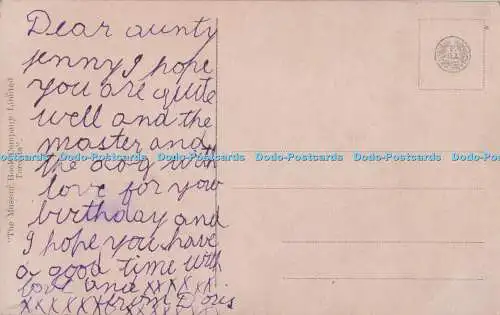 Dear aunty
jenny I hope
you are quite
well and the
master and
the dog with
love for your
birthday and
I hope you have
a good time with
love and xxxxx
xxxxxx from Doris
"The Musson Book Company Limited
Toronto".
Dodo-Postcards Dodo-Postcards Dodo-Postcards Dodo-Postcards Dodo-Postcards Dodo-Postcards